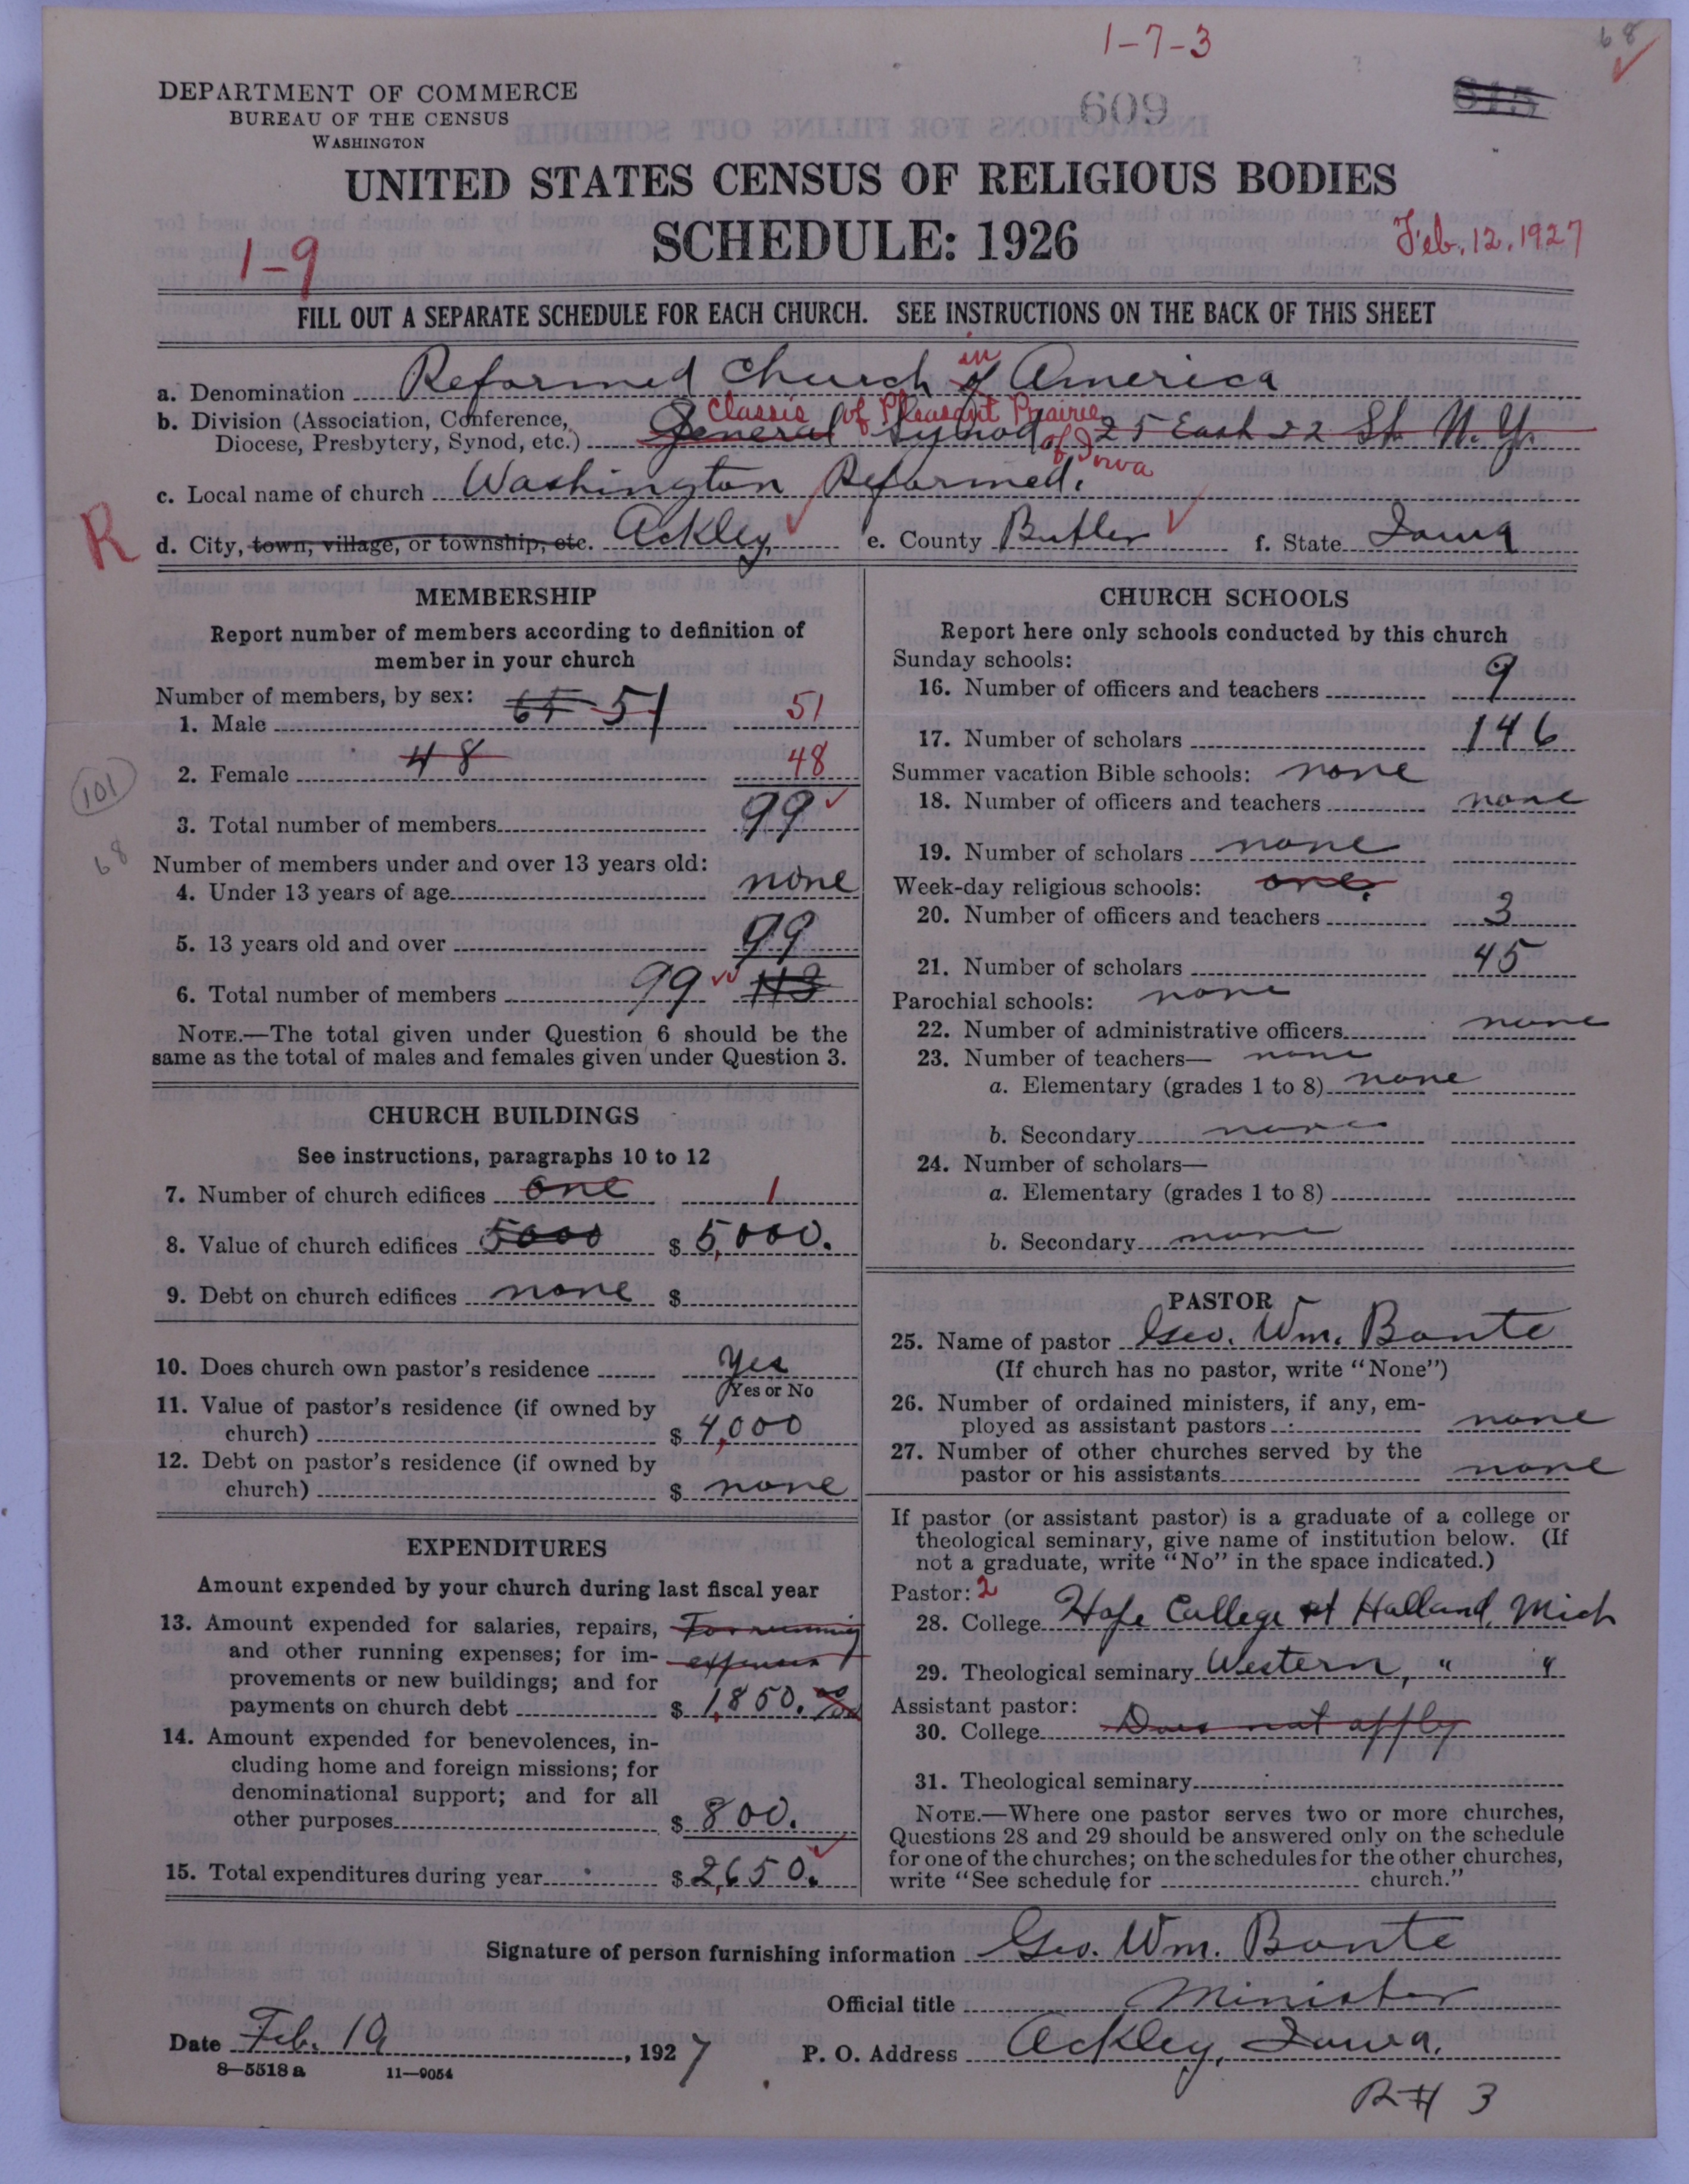 1-7-3
68
DEPARTMENT OF COMMERCE
BUREAU OF THE CENSUS
WASHINGTON
609
615
UNITED STATES CENSUS OF RELIGIOUS BODIES
SCHEDULE: 1926
1-9
Feb. 12, 1927
FILL OUT A SEPARATE SCHEDULE FOR EACH CHURCH. SEE INSTRUCTIONS ON THE BACK OF THIS SHEET
a. Denomination Reformed Church of in America
b. Division (Association, Conference, Classis of Pleasant Prairie
Diocese, Presbytery, Synod, etc.) General Synod 25 East 22 St. N.Y. of Iowa
c. Local name of church Washington Reformed.
R
d. City, town, village, or township, etc. Ackley, e. County Butler f. State Iowa
MEMBERSHIP
Report number of members according to definition of
member in your church
Number of members, by sex:
1. Male 65 51 51
2. Female 48 48
101
3. Total number of members 99
68
Number of members under and over 13 years old:
4. Under 13 years of age none
5. 13 years old and over 99
6. Total number of members 99 113
NOTE.—The total given under Question 6 should be the
same as the total of males and females given under Question 3.
CHURCH BUILDINGS
See instructions, paragraphs 10 to 12
7. Number of church edifices one 1
8. Value of church edifices 5000 $ 5,000.
9. Debt on church edifices none $
10. Does church own pastor's residence yes
Yes or No
11. Value of pastor's residence (if owned by
church) $ 4,000
12. Debt on pastor's residence (if owned by
church) $ none
EXPENDITURES
Amount expended by your church during last fiscal year
13. Amount expended for salaries, repairs, For running
and other running expenses; for im- expenses
provements or new buildings; and for
payments on church debt $ 1,850.
14. Amount expended for benevolences, in-
cluding home and foreign missions; for
denominational support; and for all
other purposes $ 800.
15. Total expenditures during year $ 2,650.
CHURCH SCHOOLS
Report here only schools conducted by this church
Sunday schools:
16. Number of officers and teachers 9
17. Number of scholars 146
Summer vacation Bible schools: none
18. Number of officers and teachers none
19. Number of scholars none
Week-day religious schools: one.
20. Number of officers and teachers 3
21. Number of scholars 45
Parochial schools: none
22. Number of administrative officers none
23. Number of teachers— none
a. Elementary (grades 1 to 8) none
b. Secondary none
24. Number of scholars—
a. Elementary (grades 1 to 8)
b. Secondary none
PASTOR
25. Name of pastor Geo. Wm. Bonte
(If church has no pastor, write "None")
26. Number of ordained ministers, if any, em-
ployed as assistant pastors none
27. Number of other churches served by the
pastor or his assistants none
If pastor (or assistant pastor) is a graduate of a college or
theological seminary, give name of institution below. (If
not a graduate, write "No" in the space indicated.)
Pastor: 2
28. College Hope College at Holland, Mich
29. Theological seminary Western, " "
Assistant pastor:
30. College Does not apply
31. Theological seminary
NOTE.—Where one pastor serves two or more churches,
Questions 28 and 29 should be answered only on the schedule
for one of the churches; on the schedules for the other churches,
write "See schedule for church."
Signature of person furnishing information Geo. Wm. Bonte
Official title Minister
Date Feb. 10, 1927 P. O. Address Ackley, Iowa.
8—5518 a 11—9054
R# 3